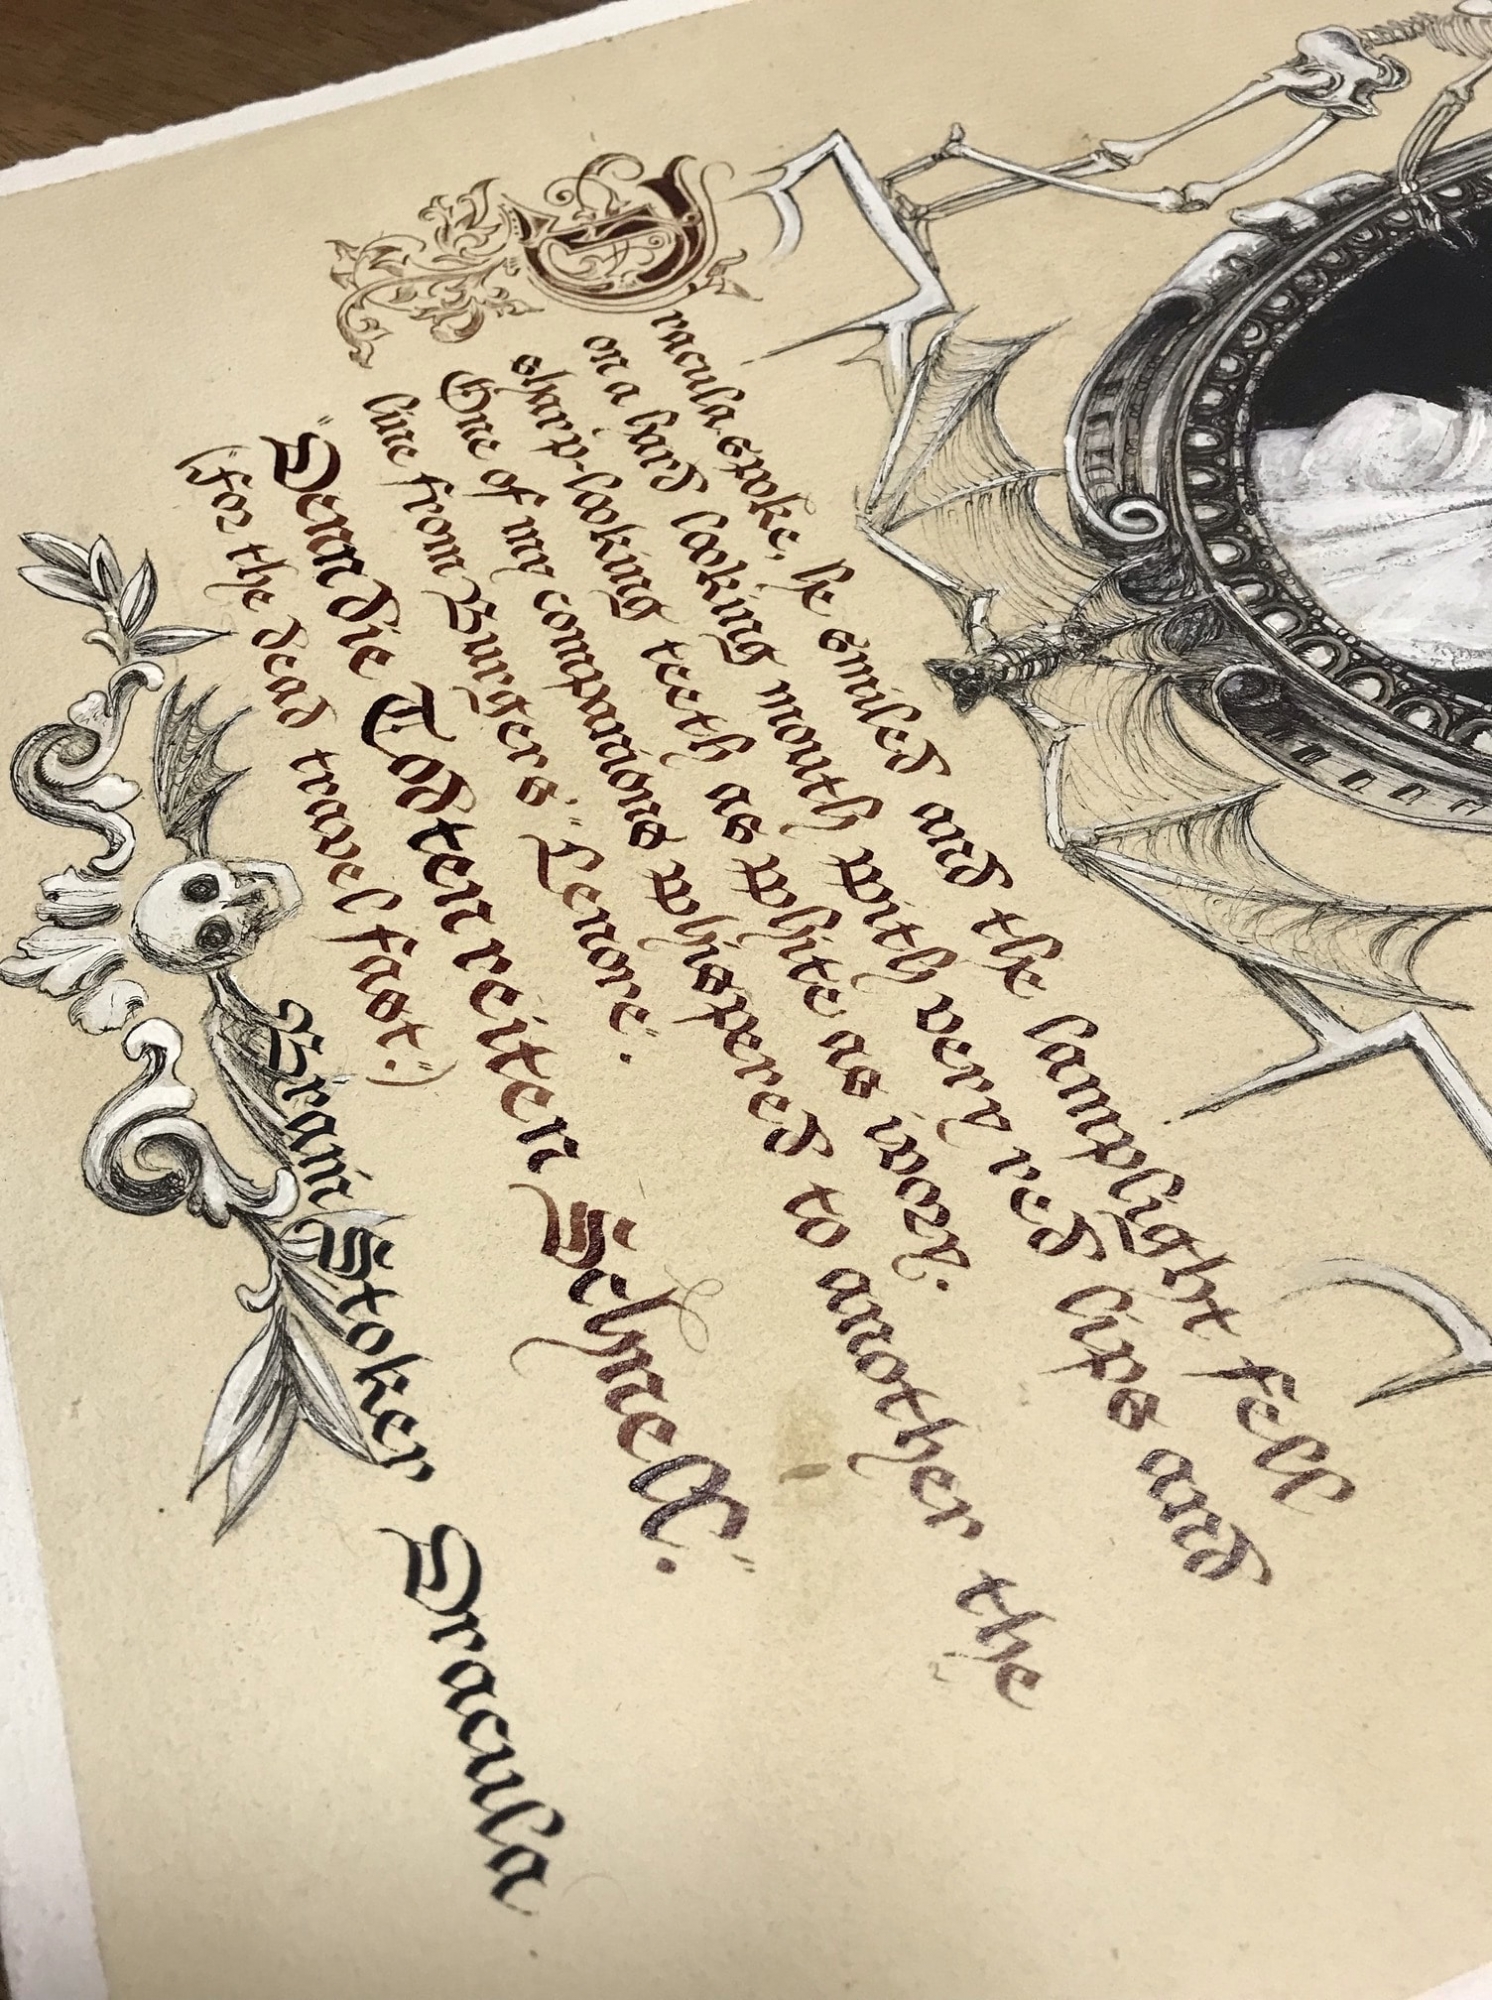 Dracula spoke, he smiled and the lamplight fell
on a hard looking mouth with very red lips and
sharp-looking teeth as white as ivory.
One of my companions whispered to another the
line from Burgers "Lenore".
"Denn die Todten reiten Schnell."
("For the dead travel fast.")
Bram Stoker Dracula